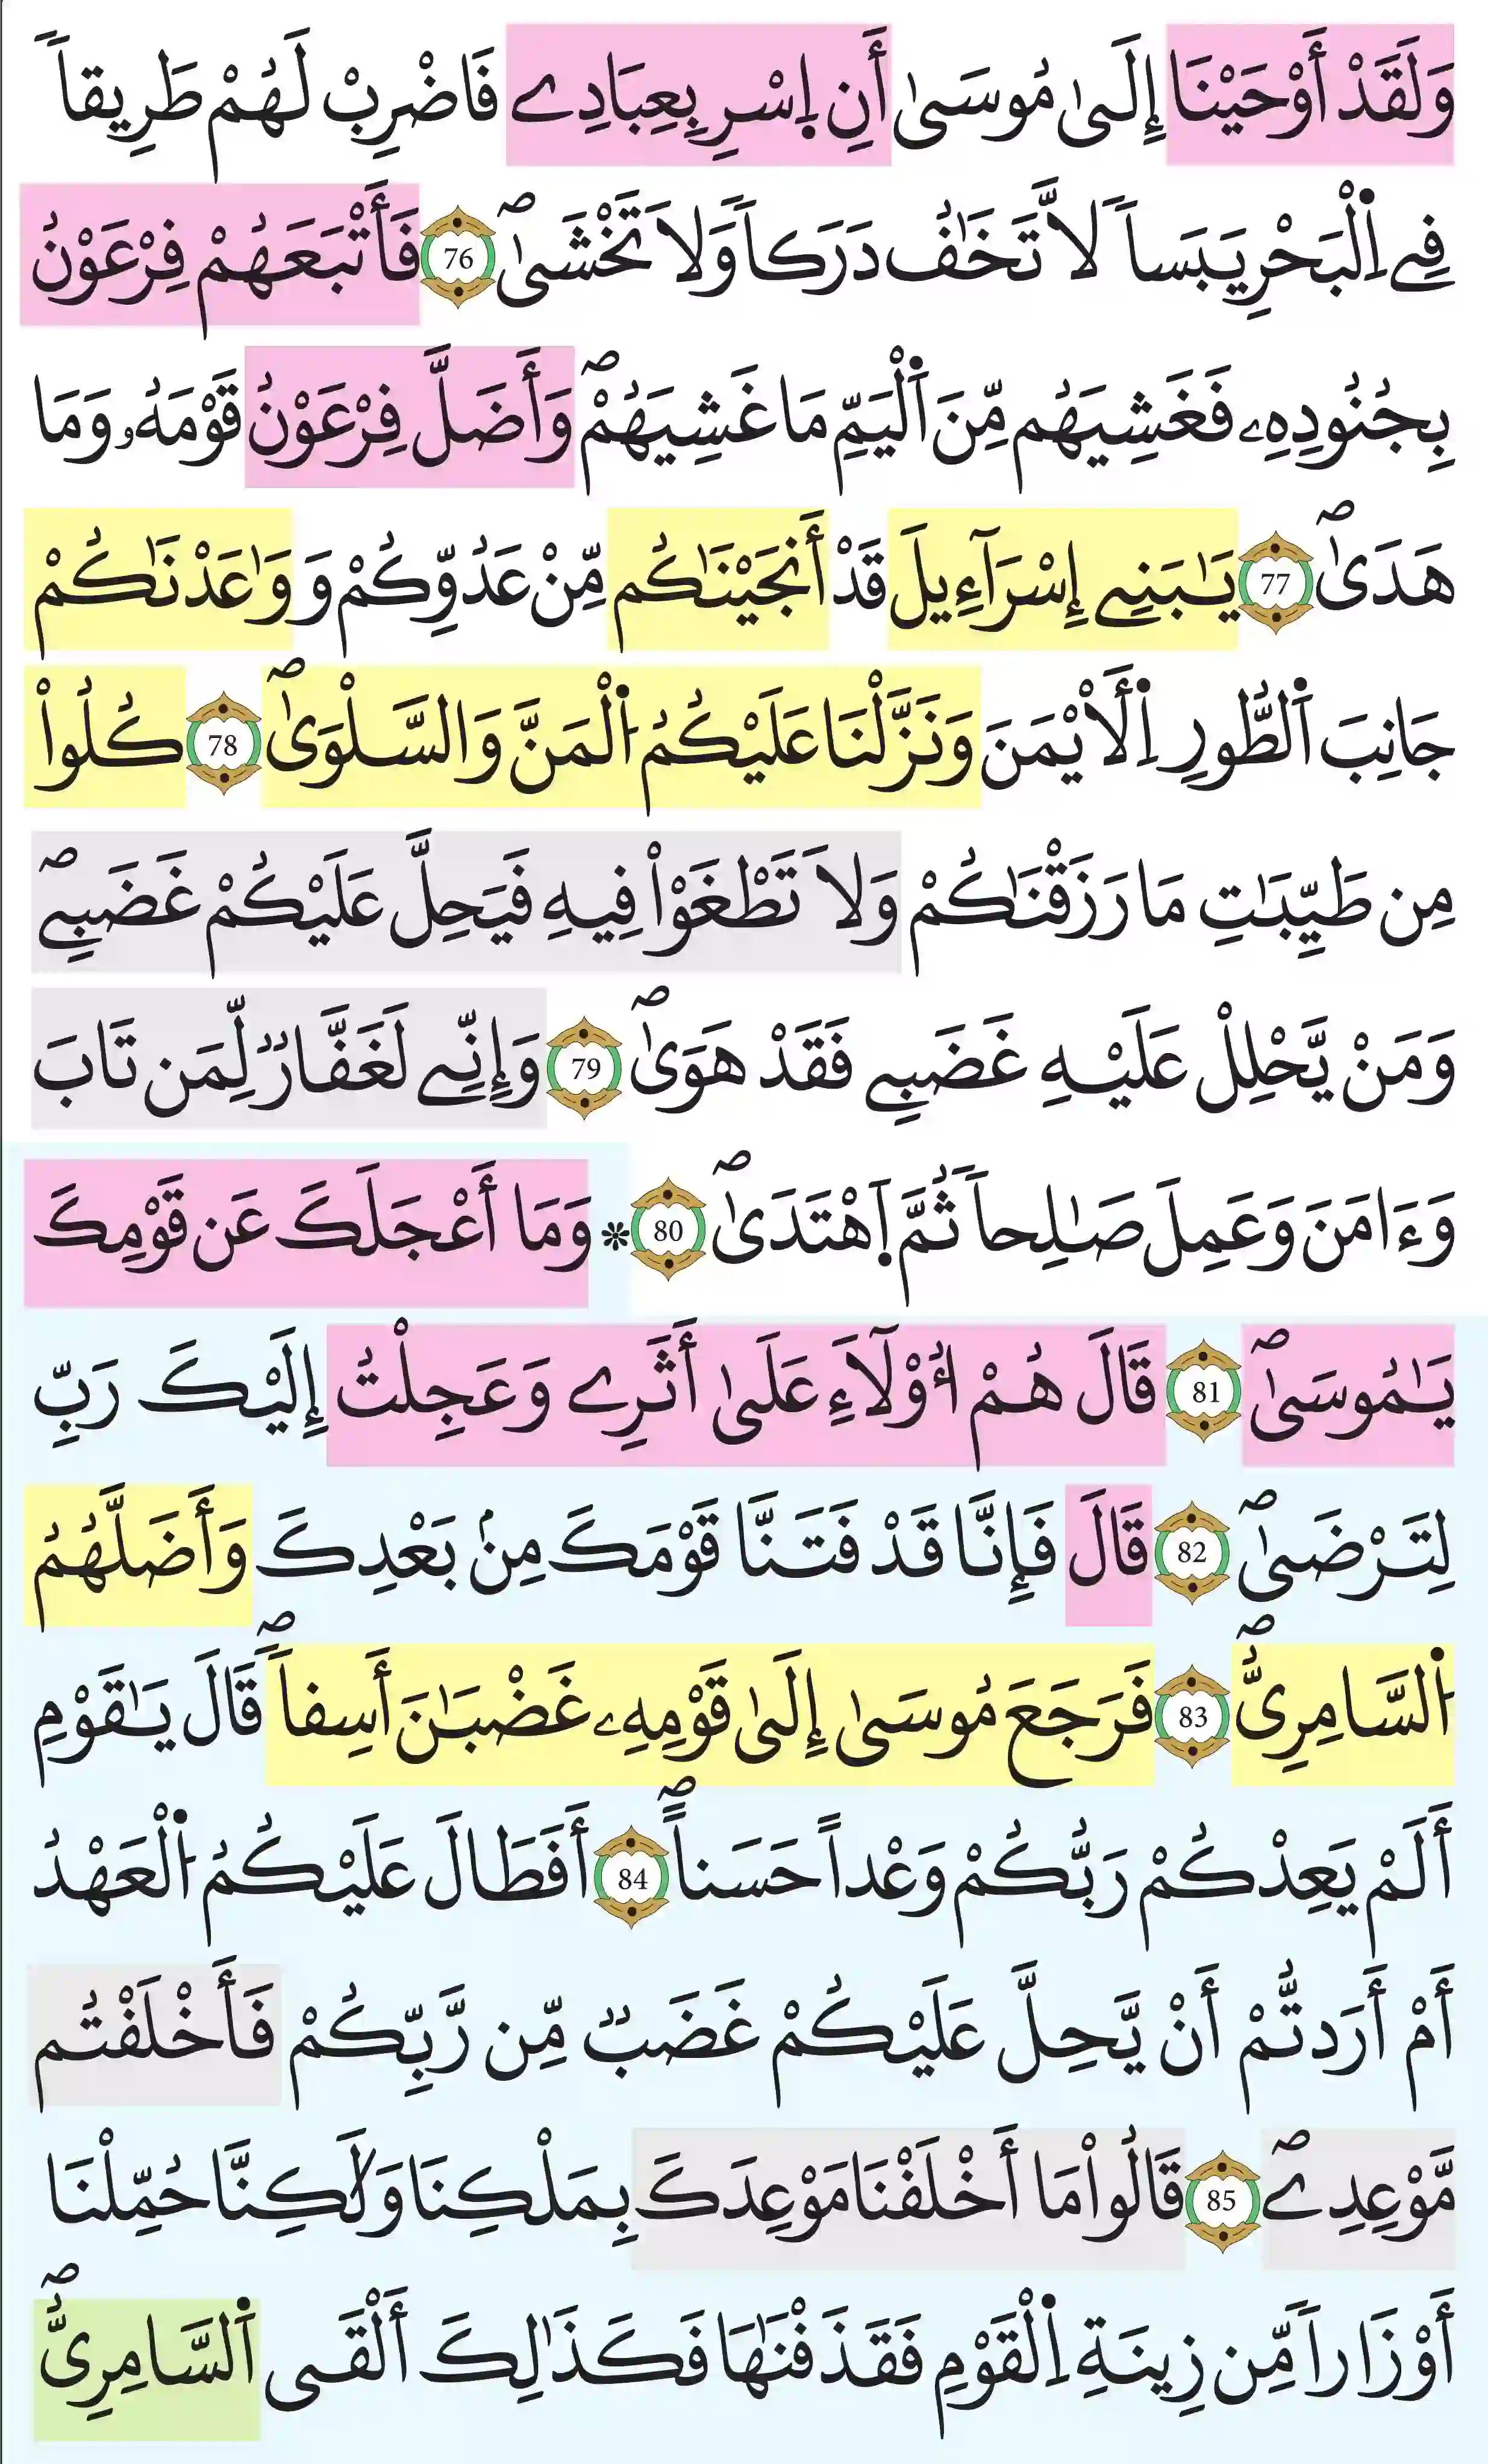 وَلَقَدْ أَوْحَيْنَا إِلَىٰ مُوسَىٰ أَنِ اِسْرِ بِعِبَادِے فَاضْرِبْ لَهُمْ طَرِيقاٗ
فِے اِ۬لْبَحْرِ يَبَساٗ لَّا تَخَٰفُ دَرَكاٗ وَلَا تَخْشَىٰۖ 76 فَأَتْبَعَهُمْ فِرْعَوْنُ
بِجُنُودِهِۦ فَغَشِيَهُم مِّنَ اَ۬لْيَمِّ مَا غَشِيَهُمْۖ وَأَضَلَّ فِرْعَوْنُ قَوْمَهُۥ وَمَا
هَدَىٰۖ 77 يَٰبَنِے إِسْرَآءِيلَ قَدْ أَنجَيْنَٰكُم مِّنْ عَدُوِّكُمْ وَوَٰعَدْنَٰكُمْ
جَانِبَ اَ۬لطُّورِ اِ۬لَايْمَنَ وَنَزَّلْنَا عَلَيْكُمُ اُ۬لْمَنَّ وَالسَّلْوَىٰۖ 78 كُلُواْ
مِن طَيِّبَٰتِ مَا رَزَقْنَٰكُمْ وَلَا تَطْغَوْاْ فِيهِ فَيَحِلَّ عَلَيْكُمْ غَضَبِےۖ
وَمَنْ يَّحْلِلْ عَلَيْهِ غَضَبِے فَقَدْ هَوَىٰۖ 79 وَإِنِّے لَغَفَّارٞ لِّمَن تَابَ
وَءَامَنَ وَعَمِلَ صَٰلِحاٗ ثُمَّ اَ۪هْتَدَىٰۖ 80 * وَمَا أَعْجَلَكَ عَن قَوْمِكَ
يَٰمُوسَىٰۖ 81 قَالَ هُمْ أُوْلَآءِ عَلَىٰ أَثَرِے وَعَجِلْتُ إِلَيْكَ رَبِّ
لِتَرْضَىٰۖ 82 قَالَ فَإِنَّا قَدْ فَتَنَّا قَوْمَكَ مِنۢ بَعْدِكَ وَأَضَلَّهُمُ
اُ۬لسَّامِرِيُّۖ 83 فَرَجَعَ مُوسَىٰ إِلَىٰ قَوْمِهِۦ غَضْبَٰنَ أَسِفاٗۖ قَالَ يَٰقَوْمِ
أَلَمْ يَعِدْكُمْ رَبُّكُمْ وَعْداً حَسَناًۖ 84 أَفَطَالَ عَلَيْكُمُ اُ۬لْعَهْدُ
أَمْ أَرَدتُّمْ أَنْ يَّحِلَّ عَلَيْكُمْ غَضَبٞ مِّن رَّبِّكُمْ فَأَخْلَفْتُم
مَّوْعِدِےۖ 85 قَالُواْ مَا أَخْلَفْنَا مَوْعِدَكَ بِمَلْكِنَا وَلَٰكِنَّا حُمِّلْنَا
أَوْزَاراٗ مِّن زِينَةِ اِ۬لْقَوْمِ فَقَذَفْنَٰهَا فَكَذَٰلِكَ أَلْقَى اَ۬لسَّامِرِيُّۖ